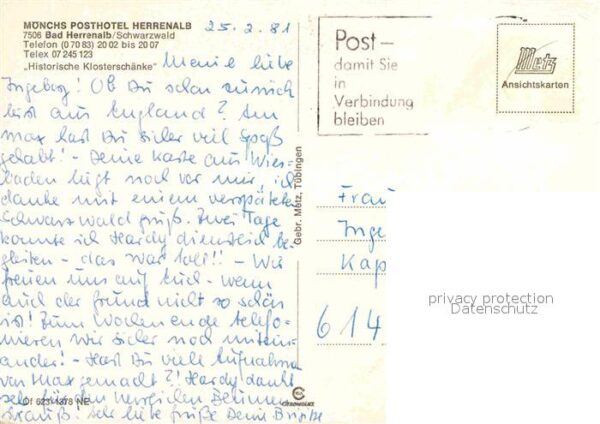 MÖNCHS POSTHOTEL HERRENALB
7506 Bad Herrenalb/Schwarzwald
Telefon (0 70 83) 20 02 bis 20 07
Telex 07 245 123
„Historische Klosterschänke"
25.2.81
Meine liebe
Ingeborg! Ob Du schon zurück
bist aus England? Am
Max hast Du sicher viel Spaß
gehabt! - Deine Karte aus Wies-
baden liegt noch vor mir, ich
danke mit einem verspäteten
Schwarzwaldgruß. Zwei Tage
konnte ich Hardy dienstlich be-
gleiten - das war toll!! - Wir
freuen uns auf Euch - wenn
auch der Grund nicht so schön
ist! Zum Wochenende telefo-
nieren wir sicher noch mitein-
ander! - Hast Du viele Aufnahmen
von Max gemacht?! Hardy dankt
sehr für den herzlichen
Sehr liebe Grüße Deine Brigitte
Of 623 1378 NE
Gebr. Metz, Tübingen
Post -
damit Sie
in
Verbindung
bleiben
Metz
Ansichtskarten
Frau
Inge
Kap
614
privacy protection
Datenschutz